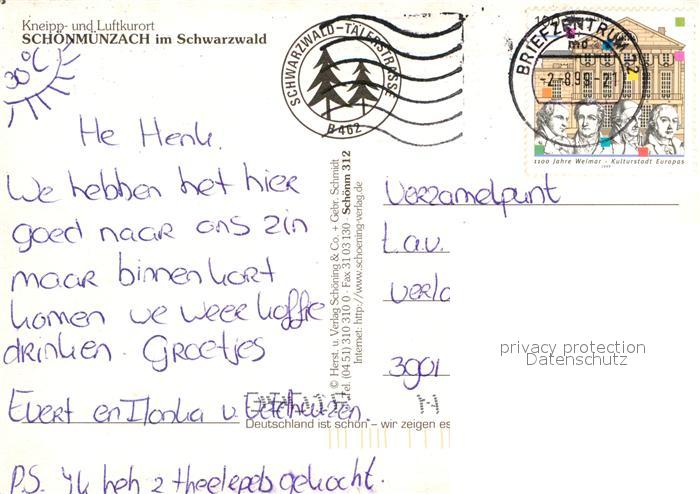 Kneipp- und Luftkurort
SCHÖNMÜNZACH im Schwarzwald
30°C
SCHWARZWALD-TÄLERSTRASSE
B 462
BRIEFZENTRUM
-2.-8.99-21
1100 Jahre Weimar - Kulturstadt Europas
1999
He Henk.
We hebben het hier
goed naar ons zin
maar binnenkort
komen we weer koffie
drinken. Groetjes
Evert en Ilonka v
P.S. Ik heb 2 theelepels gekocht.
© Herst. u. Verlag Schöning & Co. + Gebr. Schmidt
Tel. (04 51) 310 310 0 · Fax 31 03 130 · Schönm 312
Internet: http://www.schoening-verlag.de
Deutschland ist schön – wir zeigen es
Verzamelpunt
t.a.v.
3901
privacy protection
Datenschutz